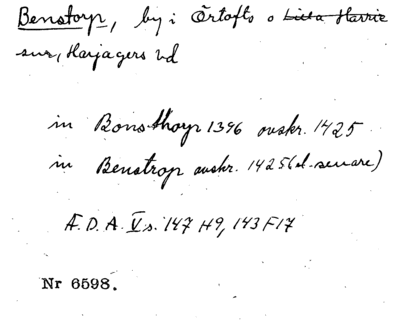 Benstorp, by i Örtofts o Lilla Harrie
snr, Harjagers hd
in Bonsthorp 1396 avskr. 1425
in Benstrop avskr. 1425 (el. senare)
Æ.D.A. V s. 147 H9, 143 F17
Nr 6598.